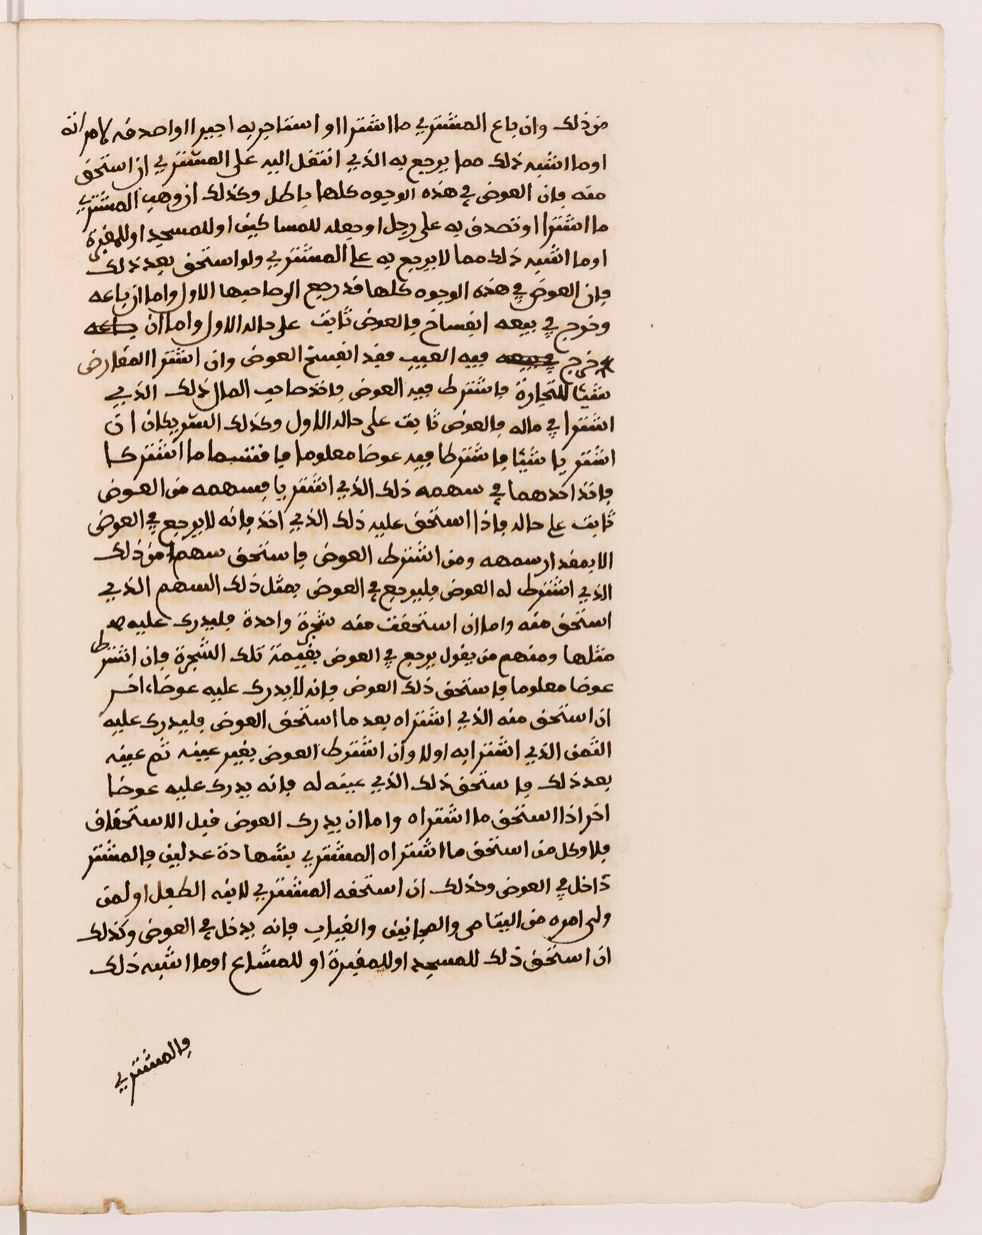 من ذلك وان باع المشتري ما اشترا او استاجر به اجيرا او اصدقه لامراته
او ما اشبه ذلك مما يرجع به الذي انتقل اليه على المشتري ان استحق
منه فان العوض في هذه الوجوه كلها باطل وكذلك ان وهب المشتري
ما اشترا او تصدق به على رجل او جعله للمساكين او للمسجد او للمقبرة
او ما اشبه ذلك مما لا يرجع به على المشتري ولو استحق بعد ذلك
فان العوض في هذه الوجوه كلها قد رجع الى صاحبها الاول واما ان باعه
وخرج في بيعه انفساخ فالعوض ثابت على حاله الاول واما ان باعه
خرج في بيعه فيه العيب فقد انفسخ العوض وان اشترا المقارض
شيئا للتجارة فاشترط فيه العوض فاخذ صاحب المال ذلك الذي
اشترا في ماله فالعوض ثابت على حاله الاول وكذلك الشريكان ان
اشتريا شيئا فاشترطا فيه عوضا معلوما فاقتسما ما اشتركا
فاخذ احدهما في سهمه ذلك الذي اشتريا فسهمه من العوض
ثابت على حاله فاذا استحق عليه ذلك الذي اخذ فانه لا يرجع في العوض
الا بمقدار سهمه ومن اشترط العوض فاستحق سهم من ذلك
الذي اشترط له العوض فليرجع في العوض بمثل ذلك السهم الذي
استحق منه واما ان استحقت منه شجرة واحدة فليدرك عليه
مثلها ومنهم من يقول يرجع في العوض بقيمة تلك الشجرة فان اشترط
عوضا معلوما فاستحق ذلك العوض فانه لا يدرك عليه عوضا اخر
ان استحق منه الذي اشتراه بعد ما استحق العوض فليدرك عليه
الثمن الذي اشترا به اولا وان اشترط العوض بغير عينه ثم عينه
بعد ذلك فاستحق ذلك الذي عينه له فانه يدرك عليه عوضا
اخر اذا استحق ما اشتراه واما ان يدرك العوض قبل الاستحقاق
فلا وكل من استحق ما اشتراه المشتري بشهادة عدلين فالمشتر
داخل في العوض وكذلك ان استحقه المشتري لابنه الطفل او لمن
ولي امره من اليتامى والمجانين والغياب فانه يدخل في العوض وكذلك
ان استحق ذلك للمسجد او للمقبرة او للمشاع او ما اشبه ذلك
فالمشتري